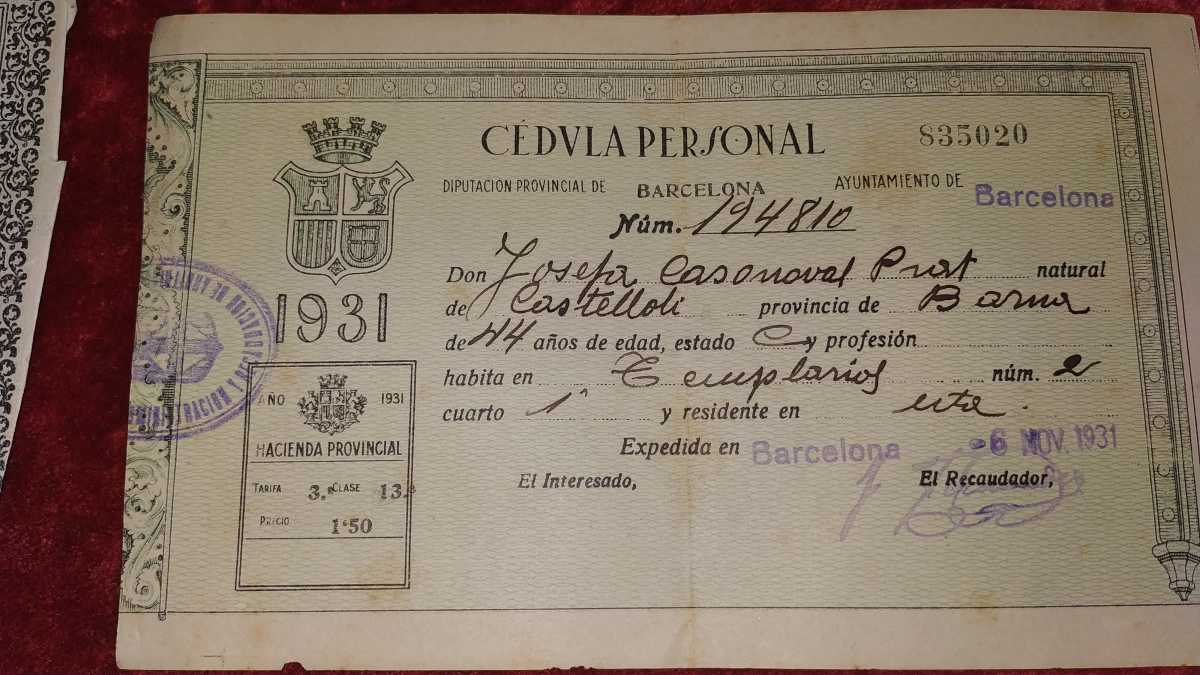 CÉDVLA PERSONAL 835020
DIPUTACIÓN PROVINCIAL DE BARCELONA AYUNTAMIENTO DE Barcelona
Núm. 194810
Don Josefa Casanovas Prat natural
de Castelloli provincia de Barna
de 44 años de edad, estado C y profesión
habita en Templarios núm. 2
cuarto 1ª y residente en esta.
Expedida en Barcelona -6 NOV. 1931
El Interesado, El Recaudador,
1931
AÑO 1931
HACIENDA PROVINCIAL
TARIFA 3.ª CLASE 13.ª
PRECIO 1'50